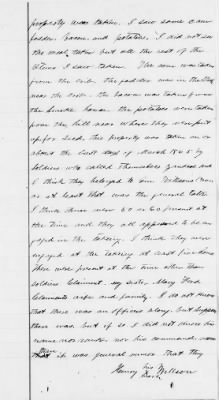 property was taken. I saw some corn
fodder, bacon and potatoes. I did not see
the meal taken but all the rest of the
items I saw taken. The corn was taken
from the crib. the fodder was in the
near the crib. the bacon was taken from
the smoke house the potatoes were taken
from the hill near where they were put
up for seed. this property was taken on or
about the last days of March 1865 by
soldiers who called themselves
I think they belonged to
as at least that was the general talk.
I think there were 50 or 60 present at
the time and they all appeared to be en
gaged in the taking. I think they were
engaged at the taking at least
there were present at the time other than
soldiers Claimant, my sister Mary
Claimants wife and family. I do not know
that there was an officer along, but suppose
there was but if so I did not know his
name nor rank nor his command
that it was general rumor that they
Henry his Wilson
mark